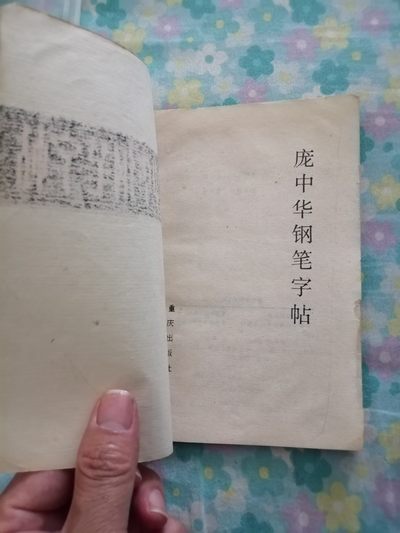 庞中华钢笔字帖
重庆出版社